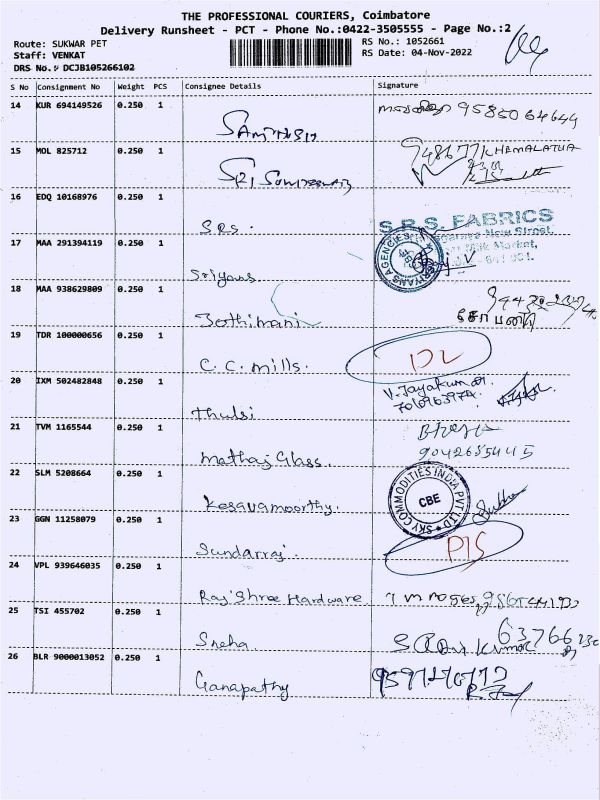 THE PROFESSIONAL COURIERS, Coimbatore
Delivery Runsheet - PCT - Phone No.:0422-3505555 - Page No.:2
Route: SUKWAR PET
RS No.: 1052661
Staff: VENKAT
RS Date: 04-Nov-2022
DRS No.: DCJB105266102
S No Consignment No Weight PCS Consignee Details Signature
14 KUR 694149526 0.250 1
9585064644
15 MOL 825712 0.250 1
HEMALATHA
16 EDQ 10168976 0.250 1
S.R.S.
S.R.S. FABRICS
New Street,
Milk Market,
17 MAA 291394119 0.250 1
Sriyans
SRIYANS AGENCIES
18 MAA 938629809 0.250 1
Jothimani
சோபனா
19 TDR 100000656 0.250 1
C.C. mills.
DL
20 IXM 502482848 0.250 1
Thulsi
V. Jayakumar.
21 TVM 1165544 0.250 1
Mathaj Glass.
9042655445
22 SLM 5208664 0.250 1
Kesavamoorthy.
SKY COMMODITIES INDIA PVT LTD
CBE
23 GGN 11258079 0.250 1
Sundarraj.
PIS
24 VPL 939646035 0.250 1
Raj Shree Hardware
25 TSI 455702 0.250 1
Sneha
63766
26 BLR 9000013052 0.250 1
Ganapathy